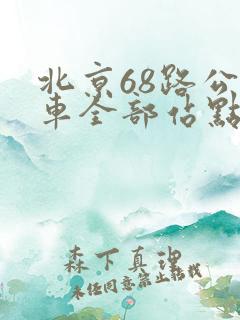 北京68路公
車全部佔點
森下真理
未经同意禁止转载